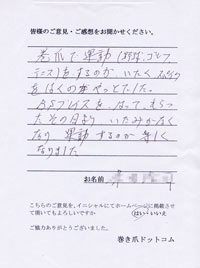 皆様のご意見・ご感想をお聞かせください。
巻爪で運動(野球、ゴルフ
テニス)をするのが いたく
をはくのがやっとでした。
BSブレイスをはって、もらっ
たその日より いたみがなく
なり 運動するのが楽しく
なりました。
お名前
こちらのご意見を、イニシャルにてホームページに掲載させ
て頂いてもよろしいですか はい・いいえ
ご協力ありがとうございました。
巻き爪ドットコム